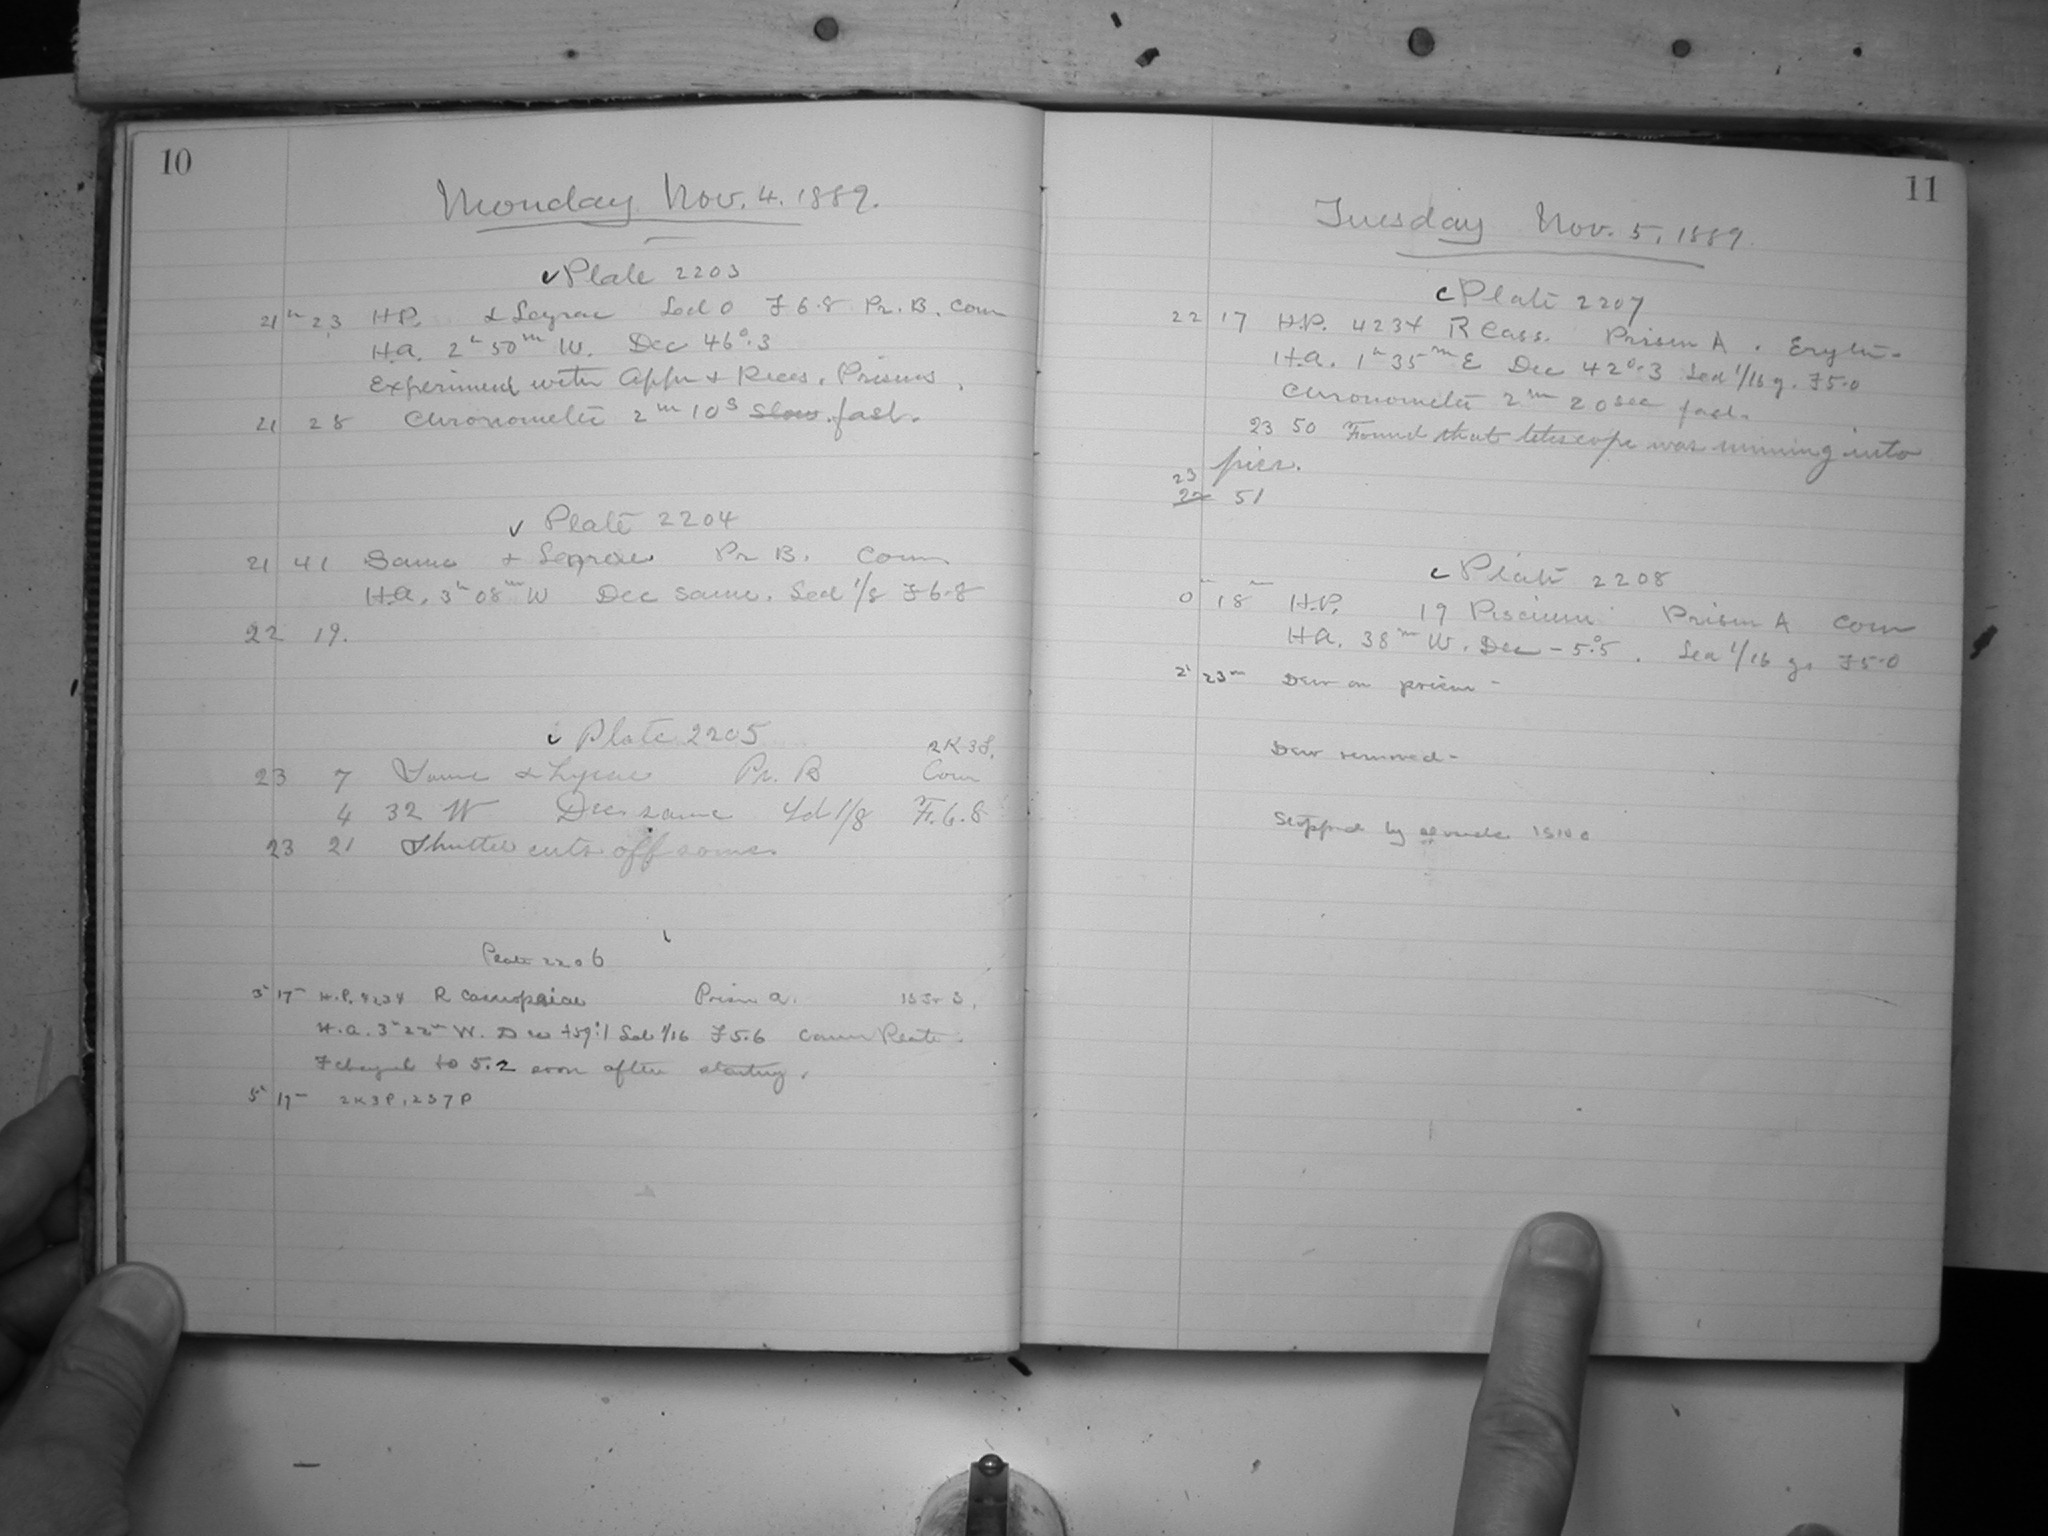 10
Monday Nov. 4. 1889.
Plate 2203
21h 23 H.P. α Lyrae Sed 0 F 6.8 Pr. B. Com
H.A. 2h 50m W. Dec 46°.3
Experiment with Appr & Reces. Prisms.
21 28 Chronometer 2m 10s slow. fast.
Plate 2204
21 41 Same α Lyrae Pr B. Com
H.A. 3h 08m W Dec same. Sed 1/8 F 6.8
22 19.
Plate 2205
2K3S.
23 7 Same α Lyrae Pr. B Com
4 32 W Dec same Sd 1/8 F. 6.8
23 21 Shutter cuts off some.
Plate 2206
3h 17m H.P. 4234 R Cassiopeiae Prism A.
H.A. 3h 22m W. Dec Sed 1/16 F 5.6 Comm Plate.
F changed to 5.2 soon after starting.
5h 17m 2K3P, 2S7P
11
Tuesday Nov. 5, 1889.
Plate 2207
22 17 H.P. 4234 R Cass. Prism A. Eryth.
H.A. 1h 35m E Dec 42°.3 Sed 1/16 g. F 5.0
Chronometer 2m 20sec fast.
23 50 Found that telescope was running into
pier.
23
22 51
Plate 2208
0h 18m H.P. 19 Piscium Prism A Com
H.A. 38m W. Dec -5°.5. Sed 1/16 g. F 5.0
2h 23m Dew on prism -
Dew removed -
Stopped by clouds